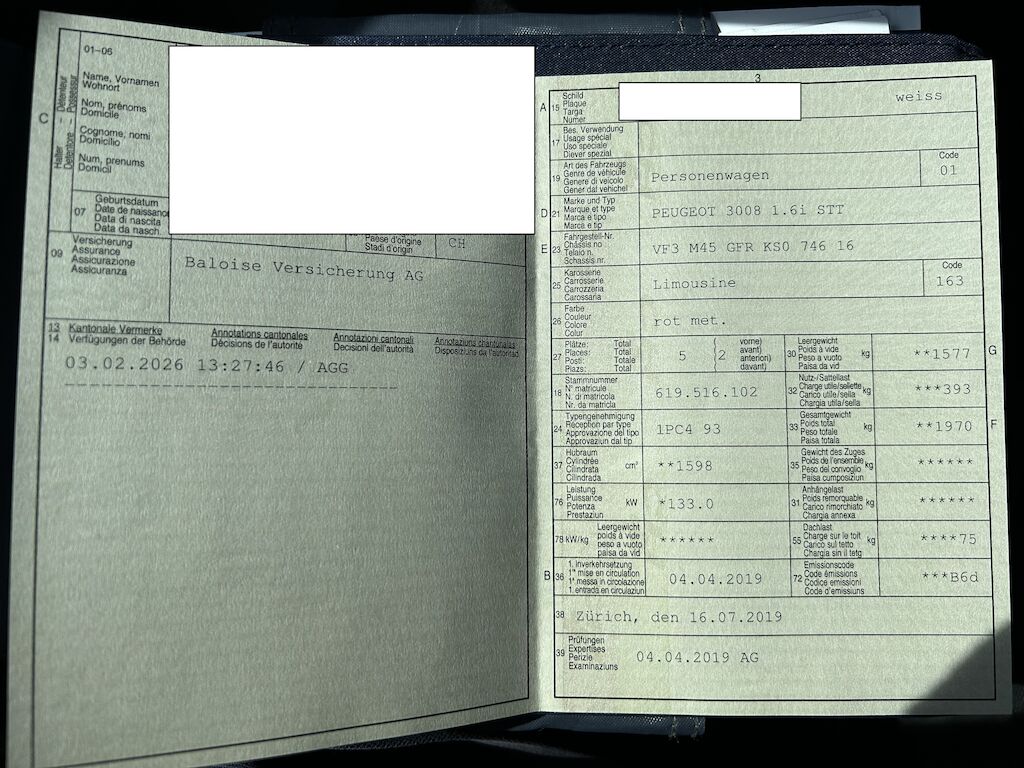 01-06
Halter – Détenteur
Detentore – Possessur
Name, Vornamen
Wohnort
Nom, prénoms
Domicile
Cognome, nomi
Domicilio
Num, prenums
Domicil
C
07
Geburtsdatum
Date de naissance
Data di nascita
Data da nasch.
Paese d'origine
Stadi d'origin
CH
09
Versicherung
Assurance
Assicurazione
Assicuranza
Baloise Versicherung AG
13 Kantonale Vermerke Annotations cantonales Annotazioni cantonali Annotaziuns chantunalas
14 Verfügungen der Behörde Décisions de l'autorité Decisioni dell'autorità Disposiziuns da l'autoritad
03.02.2026 13:27:46 / AGG
3
A 15
Schild
Plaque
Targa
Numer
weiss
17
Bes. Verwendung
Usage spécial
Uso speciale
Diever spezial
19
Art des Fahrzeugs
Genre de véhicule
Genere di veicolo
Gener dal vehichel
Personenwagen
Code
01
D 21
Marke und Typ
Marque et type
Marca e tipo
Marca e tip
PEUGEOT 3008 1.6i STT
E 23
Fahrgestell-Nr.
Châssis no
Telaio n.
Schassis nr.
VF3 M45 GFR KS0 746 16
25
Karosserie
Carrosserie
Carrozzeria
Carossaria
Limousine
Code
163
26
Farbe
Couleur
Colore
Colur
rot met.
27
Plätze: Total
Places: Total
Posti: Totale
Plazs: Total
5
(2
vorne)
avant)
anteriori)
davant)
30
Leergewicht
Poids à vide
Peso a vuoto
Paisa da vid
kg
**1577
G
18
Stammnummer
N° matricule
N. di matricola
Nr. da matricla
619.516.102
32
Nutz-/Sattellast
Charge utile/sellette
Carico utile/sella
Chargia utila/sella
kg
***393
24
Typengenehmigung
Réception par type
Approvazione del tipo
Approvaziun dal tip
1PC4 93
33
Gesamtgewicht
Poids total
Peso totale
Paisa totala
kg
**1970
F
37
Hubraum
Cylindrée
Cilindrata
Cilindrada
cm³
**1598
35
Gewicht des Zuges
Poids de l'ensemble
Peso del convoglio
Paisa cumposiziun
kg
******
76
Leistung
Puissance
Potenza
Prestaziun
kW
*133.0
31
Anhängelast
Poids remorquable
Carico rimorchiato
Chargia annexa
kg
******
78 kW/kg
Leergewicht
poids à vide
peso a vuoto
paisa da vid
******
55
Dachlast
Charge sur le toit
Carico sul tetto
Chargia sin il tetg
kg
****75
B 36
1. Inverkehrsetzung
1re mise en circulation
1a messa in circolazione
1. entrada en circulaziun
04.04.2019
72
Emissionscode
Code émissions
Codice emissioni
Code d'emissiuns
***B6d
38
Zürich, den 16.07.2019
39
Prüfungen
Expertises
Perizie
Examinaziuns
04.04.2019 AG